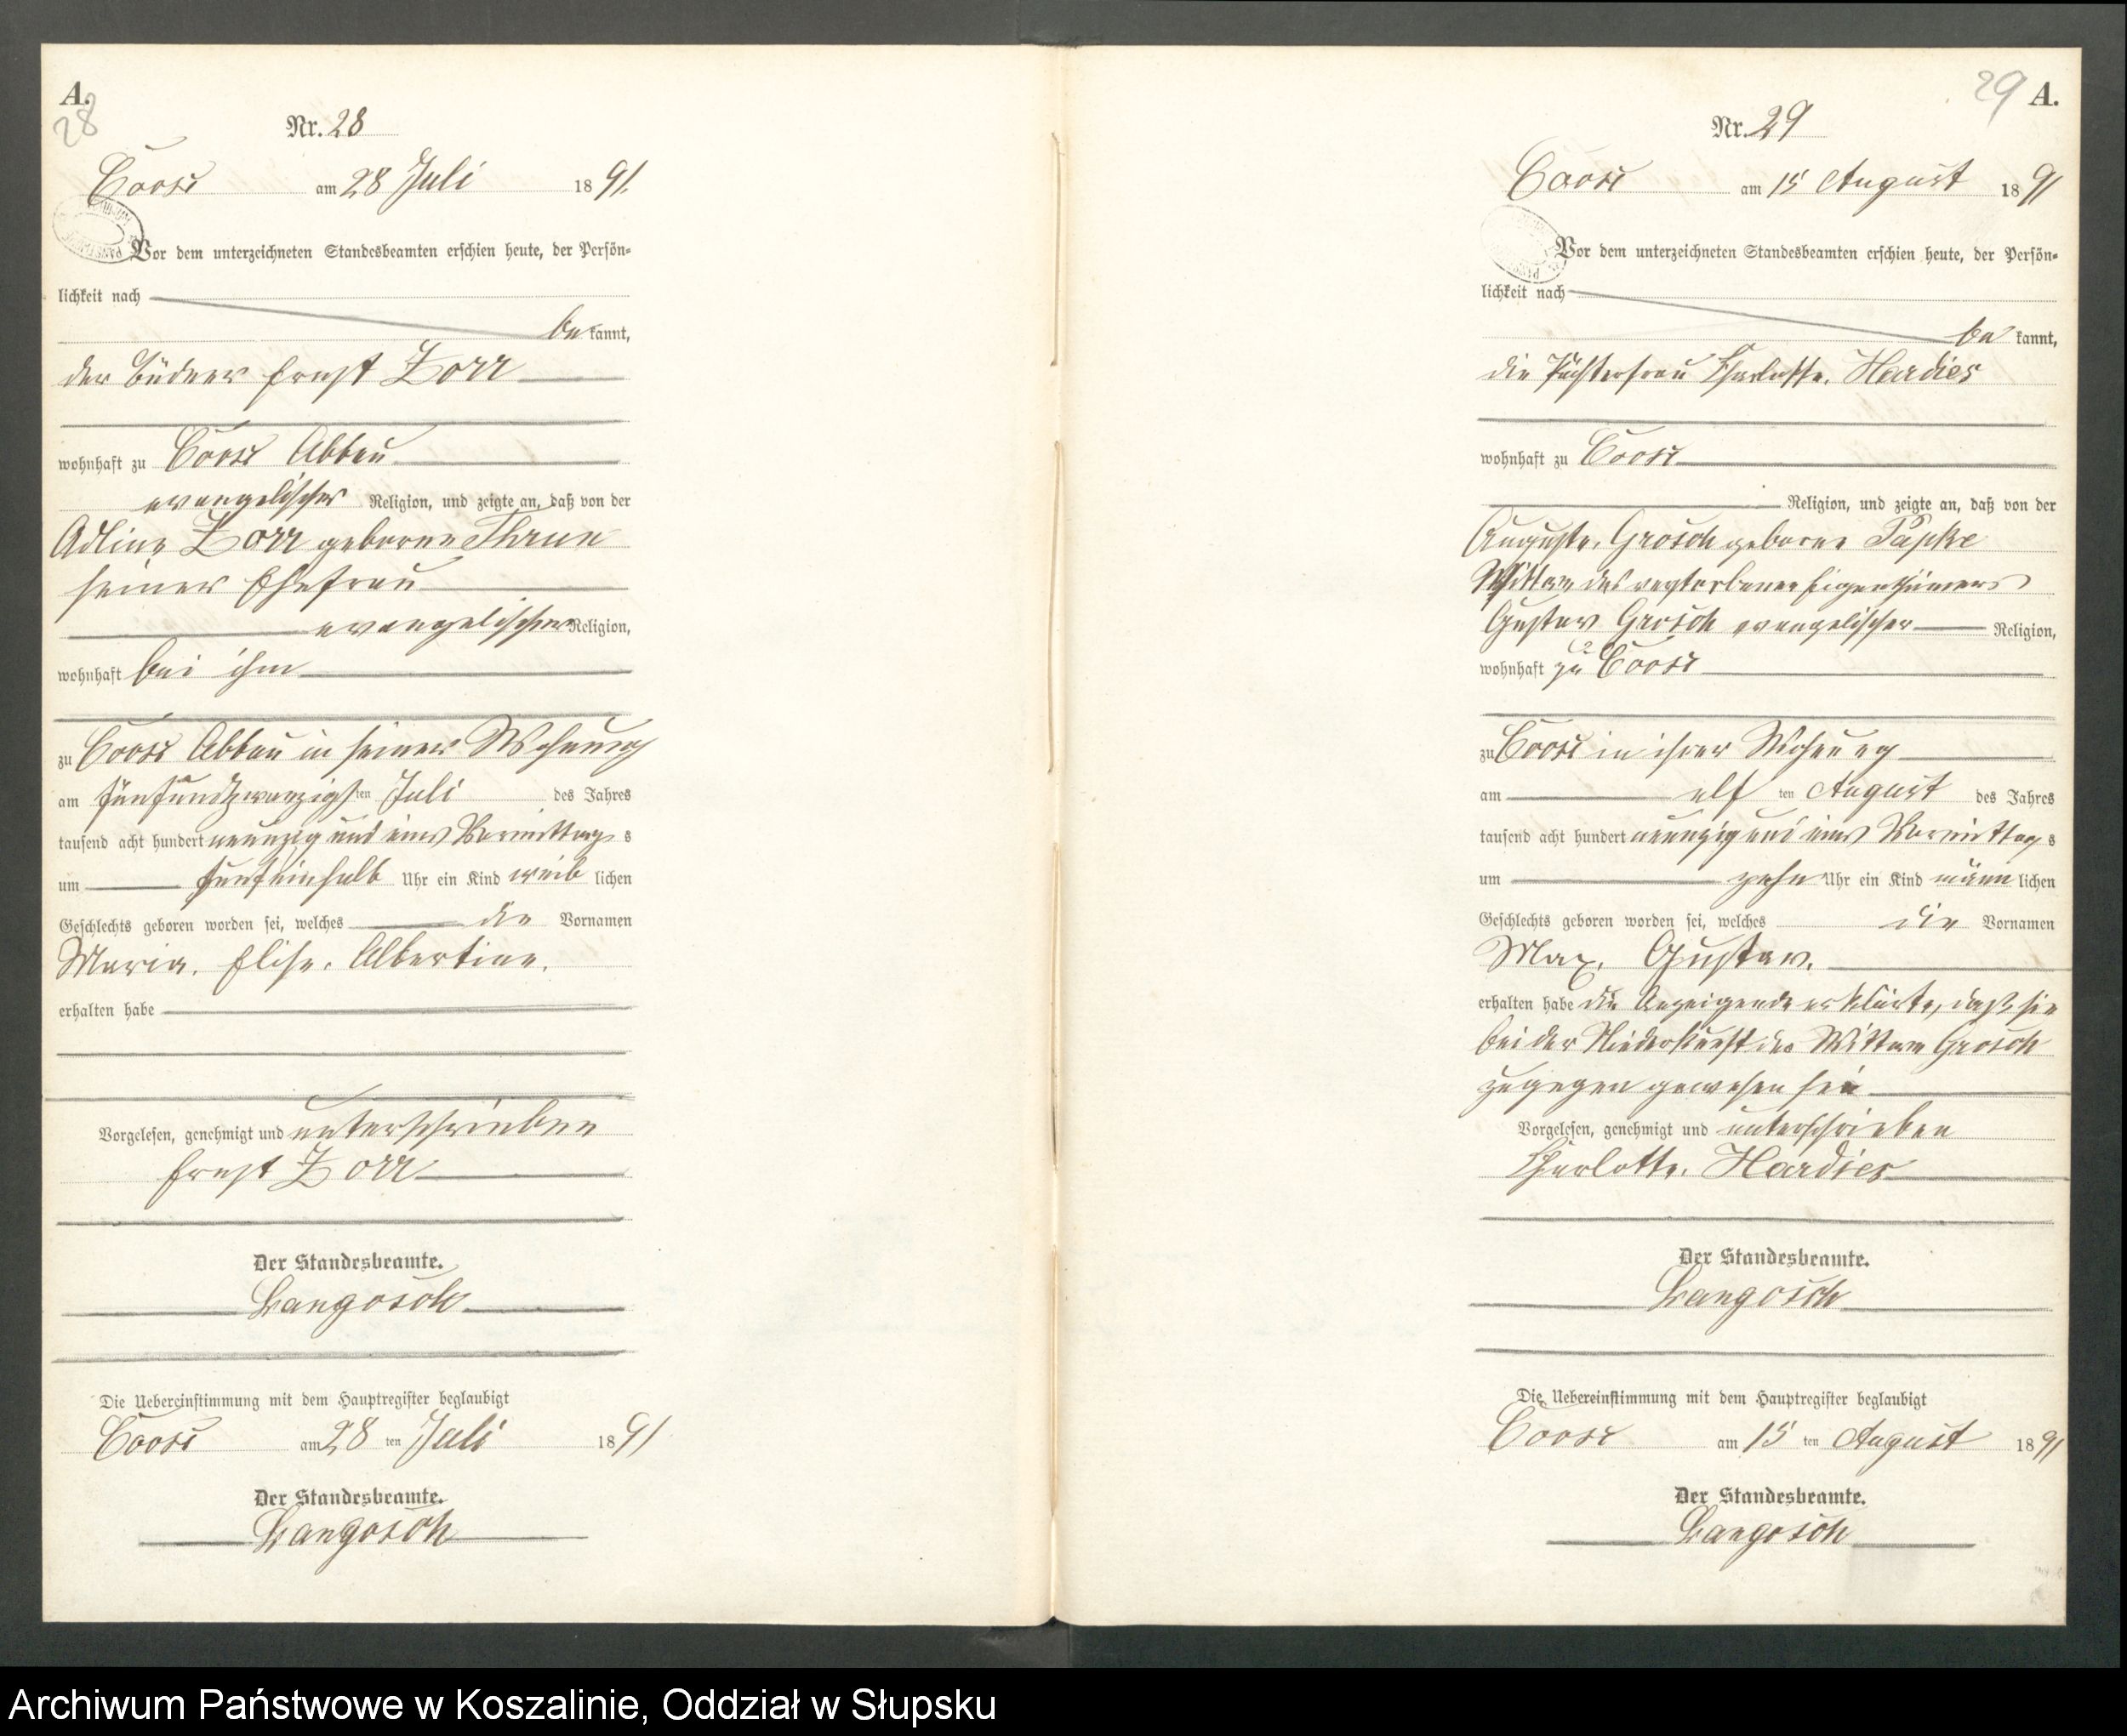 A.
28
Nr. 28
Coose am 28 Juli 1891.
Vor dem unterzeichneten Standesbeamten erschien heute, der Persön-
lichkeit nach
bekannt,
der Büdner Ernst Zorr
wohnhaft zu Coose Abbau
evangelischer Religion, und zeigte an, daß von der
Adline Zorr geborne Thrun
seiner Ehefrau
evangelischer Religion,
wohnhaft bei ihm
zu Coose Abbau in seiner Wohnung
am fünfundzwanzigsten Juli des Jahres
tausend acht hundert neunzig und eins Vormittags
um Uhr ein Kind weiblichen
Geschlechts geboren worden sei, welches die Vornamen
Maria, Elise, Albertine,
erhalten habe
Vorgelesen, genehmigt und unterschrieben
Ernst Zorr
Der Standesbeamte.
Langosch
Die Uebereinstimmung mit dem Hauptregister beglaubigt
Coose am 28 ten Juli 1891
Der Standesbeamte.
Langosch
29 A.
Nr. 29
Coose am 15 August 1891
Vor dem unterzeichneten Standesbeamten erschien heute, der Persön-
lichkeit nach
bekannt,
die Pächterfrau Charlotte, Hardies
wohnhaft zu Coose
Religion, und zeigte an, daß von der
Auguste, Grosch geborne Papke
Wittwe des verstorbenen Eigenthümers
Gustav Grosch evangelischer Religion,
wohnhaft zu Coose
zu Coose in ihrer Wohnung
am elf ten August des Jahres
tausend acht hundert neunzig und eins Vormittags
um zehn Uhr ein Kind männlichen
Geschlechts geboren worden sei, welches die Vornamen
Max, Gustav,
erhalten habe die Anzeigende erklärte, daß sie
bei der Niederkunft der Wittwe Grosch
zugegen gewesen sei
Vorgelesen, genehmigt und unterschrieben
Charlotte, Hardies
Der Standesbeamte.
Langosch
Die Uebereinstimmung mit dem Hauptregister beglaubigt
Coose am 15 ten August 1891
Der Standesbeamte.
Langosch
Archiwum Państwowe w Koszalinie, Oddział w Słupsku